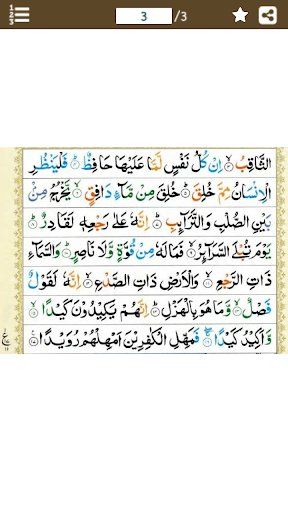 3 /3
الثَّاقِبُ ۙ﴿۳﴾ اِنْ كُلُّ نَفْسٍ لَّمَّا عَلَيْهَا حَافِظٌ ؕ﴿۴﴾ فَلْيَنْظُرِ
الْاِنْسَانُ مِمَّ خُلِقَ ؕ﴿۵﴾ خُلِقَ مِنْ مَّآءٍ دَافِقٍ ۙ﴿۶﴾ يَّخْرُجُ مِنْۢ
بَيْنِ الصُّلْبِ وَالتَّرَآئِبِ ؕ﴿۷﴾ اِنَّهٗ عَلٰى رَجْعِهٖ لَقَادِرٌ ؕ﴿۸﴾
يَوْمَ تُبْلَى السَّرَآئِرُ ۙ﴿۹﴾ فَمَا لَهٗ مِنْ قُوَّةٍ وَّلَا نَاصِرٍ ؕ﴿۱۰﴾ وَالسَّمَآءِ
ذَاتِ الرَّجْعِ ۙ﴿۱۱﴾ وَالْاَرْضِ ذَاتِ الصَّدْعِ ۙ﴿۱۲﴾ اِنَّهٗ لَقَوْلٌ
فَصْلٌ ۙ﴿۱۳﴾ وَّمَا هُوَ بِالْهَزْلِ ؕ﴿۱۴﴾ اِنَّهُمْ يَكِيْدُوْنَ كَيْدًا ۙ﴿۱۵﴾
وَّاَكِيْدُ كَيْدًا ۚۖ﴿۱۶﴾ فَمَهِّلِ الْكٰفِرِيْنَ اَمْهِلْهُمْ رُوَيْدًا ﴿۱۷﴾